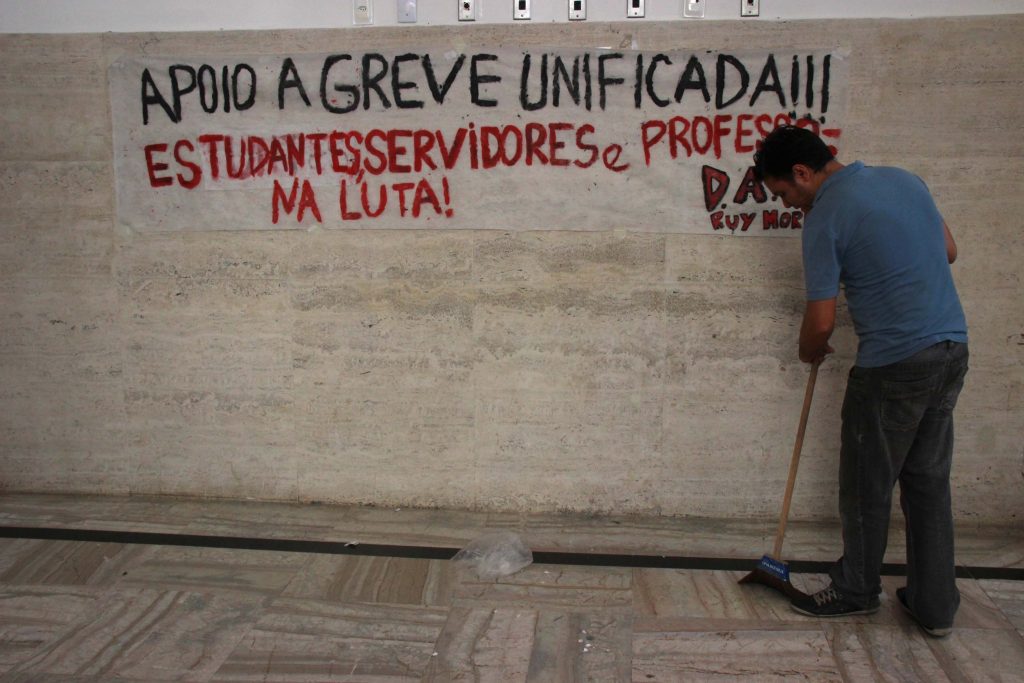 APOIO A GREVE UNIFICADA!!!
ESTUDANTES,SERVIDORES e PROFESSO-
NA LUTA!
D.A.
RUY MOR